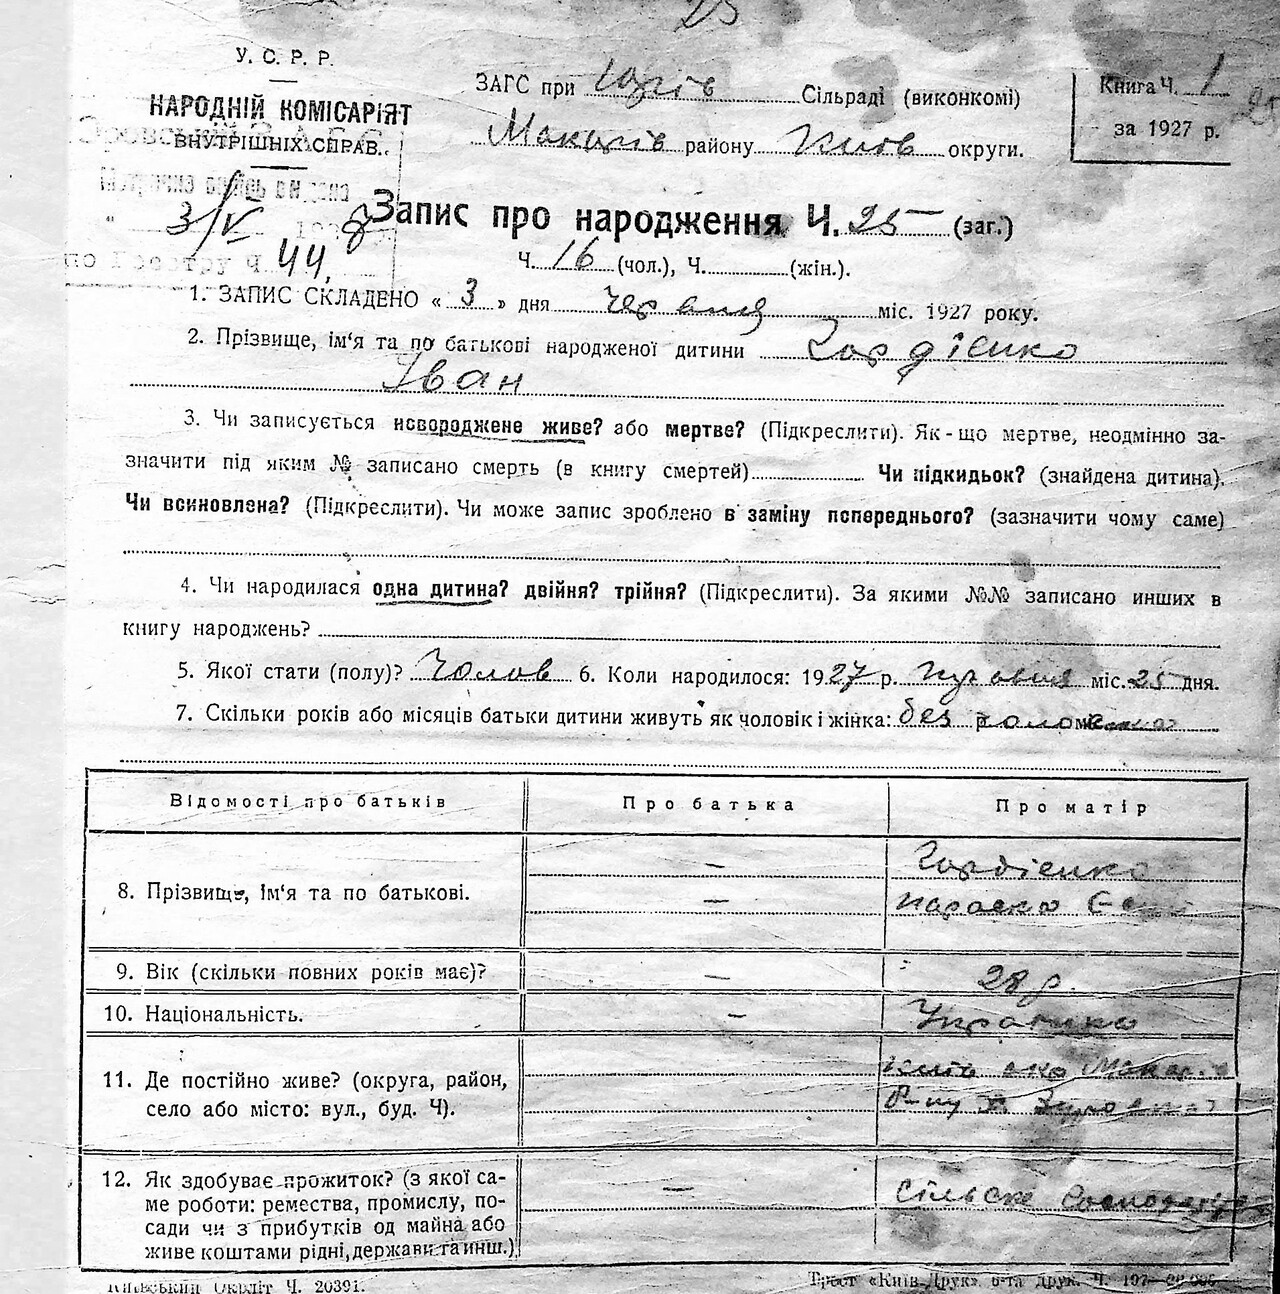 25
У. С. Р. Р.
НАРОДНІЙ КОМІСАРІЯТ
ВНУТРІШНІХ СПРАВ.
ЗАГС при Юрів Сільраді (виконкомі)
Макарів району Київ округи.
Книга Ч. 1
за 1927 р.
3/V
по Реєстру Ч 44,
Запис про народження Ч. 25 (заг.)
Ч. 16 (чол.), Ч. (жін.).
1. ЗАПИС СКЛАДЕНО « 3 » дня Червня міс. 1927 року.
2. Прізвище, ім'я та по батькові народженої дитини Гордієнко
Іван
3. Чи записується новороджене живе? або мертве? (Підкреслити). Як-що мертве, неодмінно за-
значити під яким № записано смерть (в книгу смертей) Чи підкидьок? (знайдена дитина).
Чи всиновлена? (Підкреслити). Чи може запис зроблено в заміну попереднього? (зазначити чому саме)
4. Чи народилася одна дитина? двійня? трійня? (Підкреслити). За якими №№ записано инших в
книгу народжень?
5. Якої стати (полу)? Чолов 6. Коли народилося: 1927 р. Травня міс. 25 дня.
7. Скільки років або місяців батьки дитини живуть як чоловік і жінка: без
Відомості про батьків
Про батька
Про матір
8. Прізвище, ім'я та по батькові.
—
—
Гордієнко
Параска
9. Вік (скільки повних років має)?
—
28 р.
10. Національність.
—
Українка
11. Де постійно живе? (округа, район,
село або місто: вул., буд. Ч).
Київ окр Макарів
12. Як здобуває прожиток? (з якої са-
ме роботи: ремества, промислу, по-
сади чи з прибутків од майна або
живе коштами рідні, держави та инш.)
—
Сільське Господар
Київський Окрліт Ч. 20391.
Трест «Київ-Друк» 6-та друк. Ч.